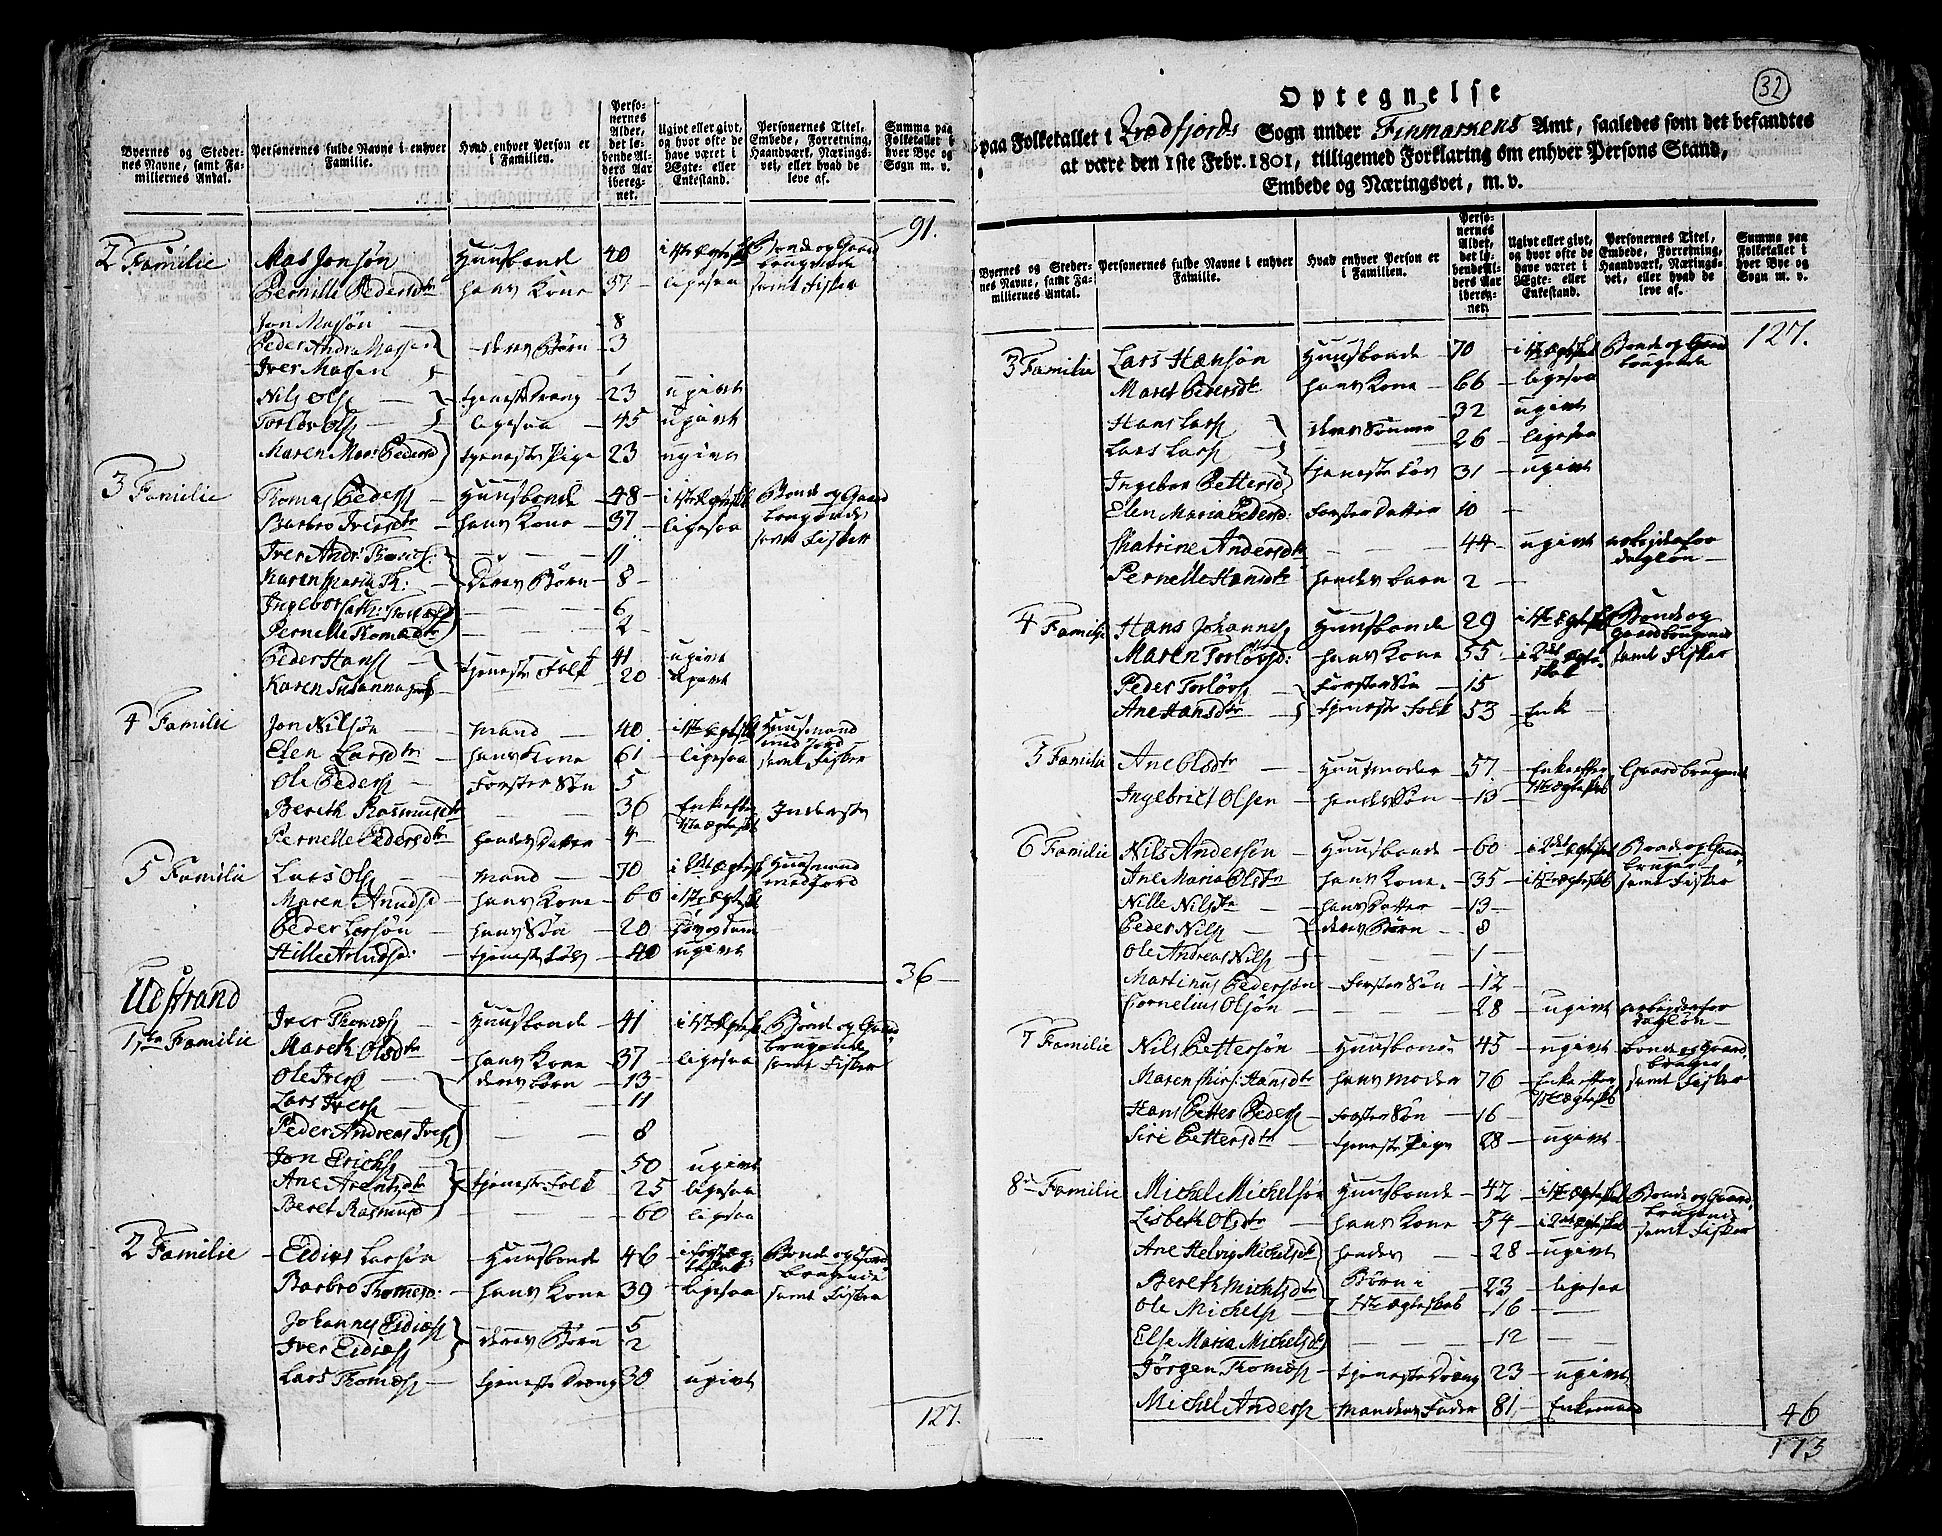 Byernes og Steder-
nes Navne, samt Fa-
miliernes Antal.
Personernes fulde Navne i enhver
Familie.
Hvad enhver Person er
i Familien.
Perso-
nernes
Alder,
det lø-
bende Al-
ders Aar
ibereg-
net.
Ugivt eller givt,
og hvor ofte de
have været i
Ægte- eller
Enkestand.
Personernes Titel,
Embede, Forretning,
Haandværk, Nærings-
vei, eller hvad de
leve af.
Summa paa
Folketallet i
hver Bye og
Sogn m. v.
91.
2 Familie Mas Jonsøn Huusbonde 40 i 1ste Ægteskb Bonde og Gaard
brugende
Pernille Pedersdtr hans Kone 37 ligesaa samt Fisker
Jon Massøn 8
Peder Andr Massen deres Børn 3
Iver Massen 1
Nils Ols tjeneste Dreng 23 ugivt
Torlöv Ols ligesaa 45 ugivt
Maren Mart Pedersd tjeneste Pige 23 ugivt
3 Familie Thomas Peders Huusbonde 48 i 1ste Ægteskb Bonde og Gaard
Barbro Iversdtr hans Kone 37 ligesaa brugende
samt Fisker
Iver Andr Thomes: 11
Karen Maria Th: deres Børn 8
Ingebor Cath: Thomesd 6
Pernelle Thomesdtr 2
Peder Hans tjeneste Folk 41 ugivt
Karen Susanna 20 ugivt
4 Familie Jon Nilsøn Mand 40 i 1ste Ægteskb Huusmand
med Jord
Elen Larsdtr hans Kone 61 ligesaa samt Fisker
Ole Peders Forster Søn 5
Bereth Rasmusdtr 36 Enke efter
1ste Ægteskb Inderste
Pernelle Pedersdtr hendes Datter 4
5 Familie Lars Ols Mand 70 i 2det Ægtesk Huusmand
med Jord
Maren Arnudsd hans Kone 60 i 1ste Ægteskb
Peder Larsøn hans Søn 20
Hille Arnudsd: tjeneste 40 ugivt
36
Udstrand
1ste Familie Iver Thomes Huusbonde 41 i 1ste Ægtesk Bonde og Gaard
Mareth Olsdtr hans Kone 37 ligesaa brugende
samt Fisker
Ole Ivers deres Børn 13
Lars Ivers 11
Peder Andreas Ivers 8
Jon Erichs 50 ugivt
Ane Arentsdtr tjeneste Folk 25 ligesaa
Beret Rasmusd 60 ligesaa
2 Familie Eidius Larsøn Huusbonde 46 i første Æg-
teskab Bonde og Gaard
brugende
Barbro Thomesd: hans Kone 39 ligesaa samt Fisker
Johannes Eidies 5
Iver Eidies deres Børn 2
Lars Thomes tjeneste Dreng 30 ugivt
127.
32
Optegnelse
paa Folketallet i Trædfjords Sogn under Finmarkens Amt, saaledes som det befandtes
at være den 1ste Febr. 1801, tilligemed Forklaring om enhver Persons Stand,
Embede og Næringsvei, m. v.
Byernes og Steder-
nes Navne, samt Fa-
miliernes Antal.
Personernes fulde Navne i enhver
Familie.
Hvad enhver Person er
i Familien.
Perso-
nernes
Alder,
det lø-
bende Al-
ders Aar
ibereg-
net.
Ugivt eller givt,
og hvor ofte de
have været i
Ægte- eller
Enkestand.
Personernes Titel,
Embede, Forretning,
Haandværk, Nærings-
vei, eller hvad de
leve af.
Summa paa
Folketallet i
hver Bye og
Sogn m. v.
127.
3 Familie Lars Hansøn Huusbonde 70 i 1ste Ægtesk Bonde og Gaard
brugende
Maret Pedersdtr hans Kone 66 ligesaa
Hans Lars 32 ugivt
Lars Lars deres Sønner 26 ligesaa
Ingebor Pettersd tjeneste 31 ugivt
Elen Maria Pedersd: Forster Datter 10
Chatrine Andersdtr 44 ugivt arbejder for
dagløn
Pernelle Hansdtr hendes Barn 2
4 Familie Hans Johannes Huusbonde 29 i 1ste Ægtesk Bonde og
Gaardbrugende
Maren Torlövsd: hans Kone 55 i 2det Ægte-
skab samt Fisker
Peder Torlövs Forster Søn 15
Ane Hansdtr tjeneste Folk 53 Enke
5 Familie Ane Olsdtr Huusmoder 57 Enke efter
1ste Ægteskb Gaardbrugende
Ingebrict Olsen hendes Søn 13
6 Familie Nils Andersøn Huusbonde 60 i 2det Ægteskb Bonde og Gaard
bruger
Ane Maria Olsdtr hans Kone 35 i 1ste Ægteskb samt Fisker
Nille Nilsdtr hans Datter 13
Peder Nils deres Børn 8
Ole Andreas Nils 1
Martinus Pedersøn Forster Søn 12
Cornelius Olsøn 28 ugivt arbejder for
dagløn
7 Familie Nils Pettersøn Huusbonde 45 ugivt bonde og Gaard
bruger
Maren Kirs: Hansdtr hans Moder 76 Enke efter
1ste Ægteskb samt Fisker
Hans Petter Peders Forster Søn 16
Siri Pettersdtr tjeneste Pige 28 ugivt
8de Familie Michel Michelsøn Huusbonde 42 i 1ste Ægteskb Bonde og Gaard
brugende
Lisbeth Olsdtr hans Kone 54 i 2det Ægteskb samt Fisker
Ane Helvig Michelsdtr hendes 28 ugivt
Bereth Michelsdtr Børn i 23 ligesaa
Ole Michels 1ste Ægteskab 16
Else Maria Michelsdtr 12
Jörgen Thomes tjeneste Dreng 23 ugivt
Michel Anders Mandens Fader 81 Enkemand
46
173